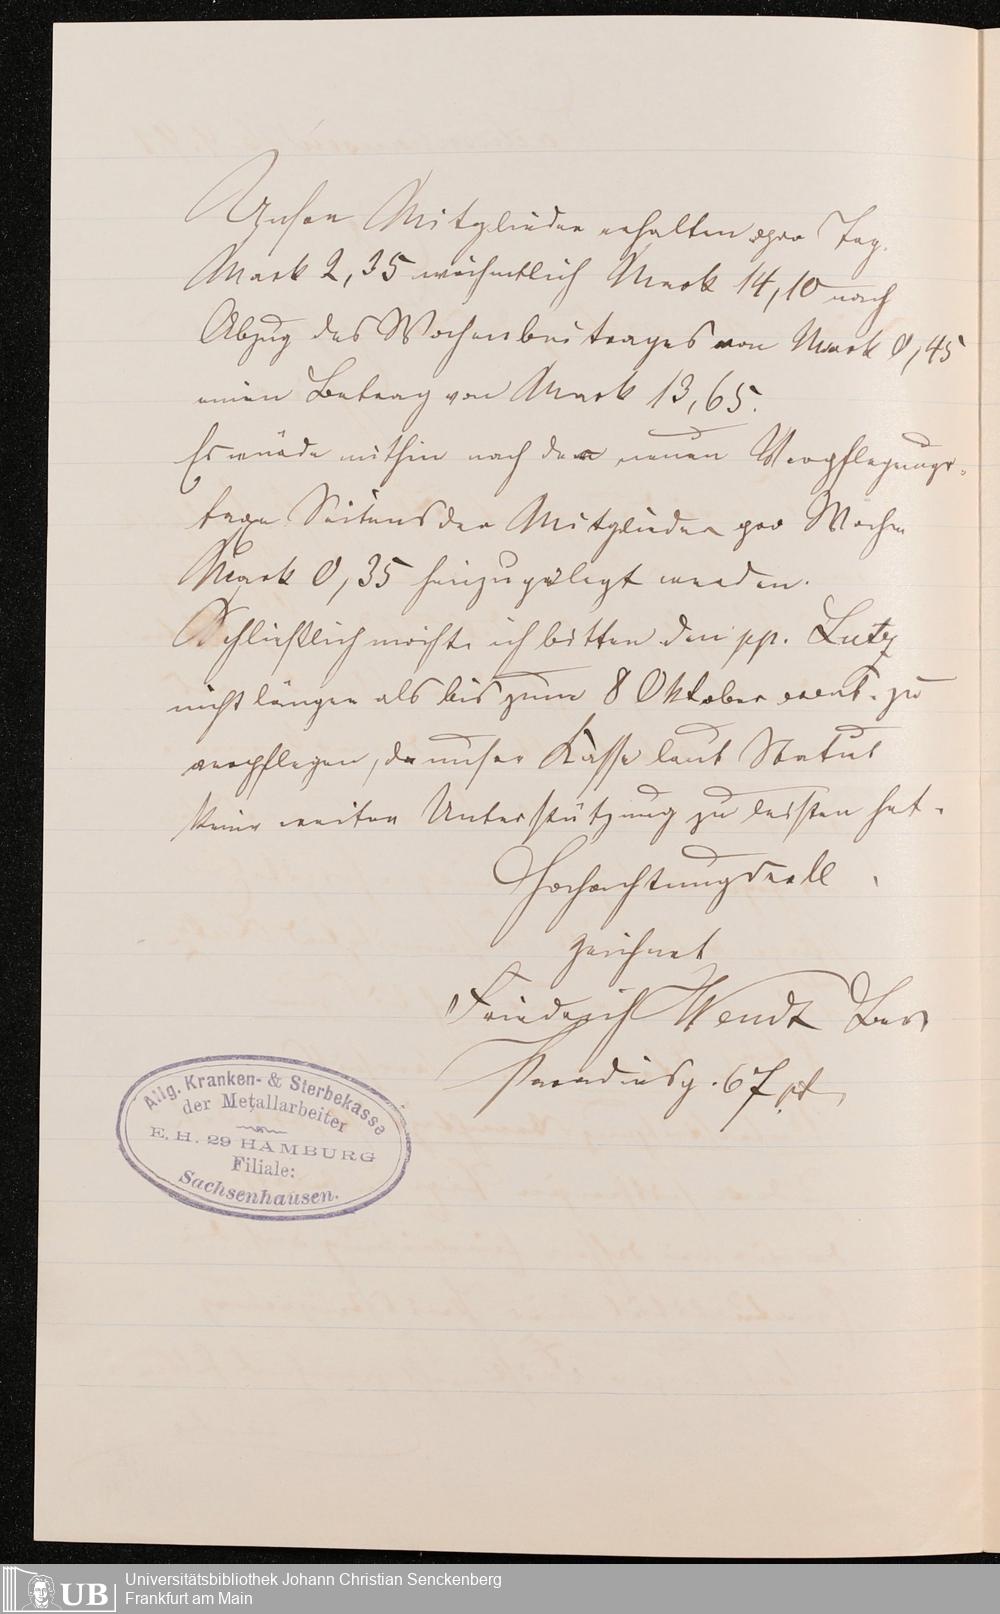 Unsere Mitglieder erhalten pro Tag
Mark 2,35 wöchentlich Mark 14,10 nach
Abzug des Wochenbeitrages von Mark 0,45
einen Betrag von Mark 13,65.
Es würde mithin nach dem neuen Verpflegungs-
taxe Seitens der Mitglieder pro Woche
Mark 0,35 hinzugelegt werden.
Schließlich möchte ich bitten den pp. Lutz
nicht länger als bis zum 8 Oktober event. zu
verpflegen, da unser Kasse laut Statut
keine weitere Unterstützung zu leisten hat.
Hochachtungsvoll
zeichnet
Friedrich Wendt Bev
Paradiesg. 67 pt
Allg. Kranken- & Sterbekasse
der Metallarbeiter
E. H. 29 HAMBURG
Filiale:
Sachsenhausen.
UB
Universitätsbibliothek Johann Christian Senckenberg
Frankfurt am Main